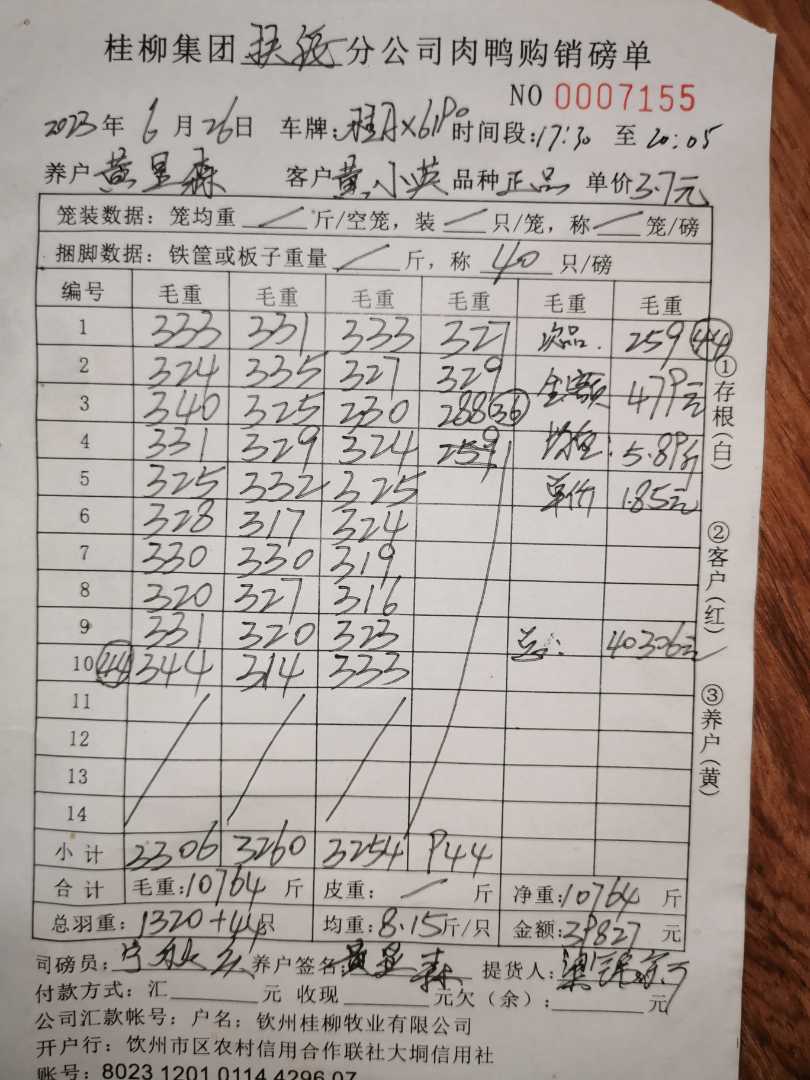 桂柳集团扶绥分公司肉鸭购销磅单
NO 0007155
2023年6月26日 车牌:桂AX61P0 时间段:17:30 至 20:05
养户 黄显森 客户黄小英 品种正品 单价3.7元
笼装数据: 笼均重 / 斤/空笼, 装 / 只/笼, 称 / 笼/磅
捆脚数据: 铁筐或板子重量 / 斤, 称 40 只/磅
编号 毛重 毛重 毛重 毛重 毛重 毛重
1 333 331 333 327 次品. 259 44
2 324 335 327 329 金额 479元
3 340 325 230 288 36 均重: 5.89斤
4 331 329 324 259 单价 1.85元
5 325 332 325
6 328 317 324
7 330 330 319
8 320 327 316
9 331 320 323 总: 40306元
10 44 344 314 333
11
12
13
14
小计 3306 3260 3254 944
合计 毛重:10764 斤 皮重: / 斤 净重:10764 斤
总羽重: 1320+44只 均重:8.15斤/只 金额:39827 元
司磅员: 养户签名:黄显森 提货人:
付款方式: 汇 元 收现 元欠(余): 元
公司汇款帐号: 户名: 钦州桂柳牧业有限公司
开户行: 钦州市区农村信用合作联社大垌信用社
账号: 8023 1201 0114 4296 07
①存根(白)
②客户(红)
③养户(黄)